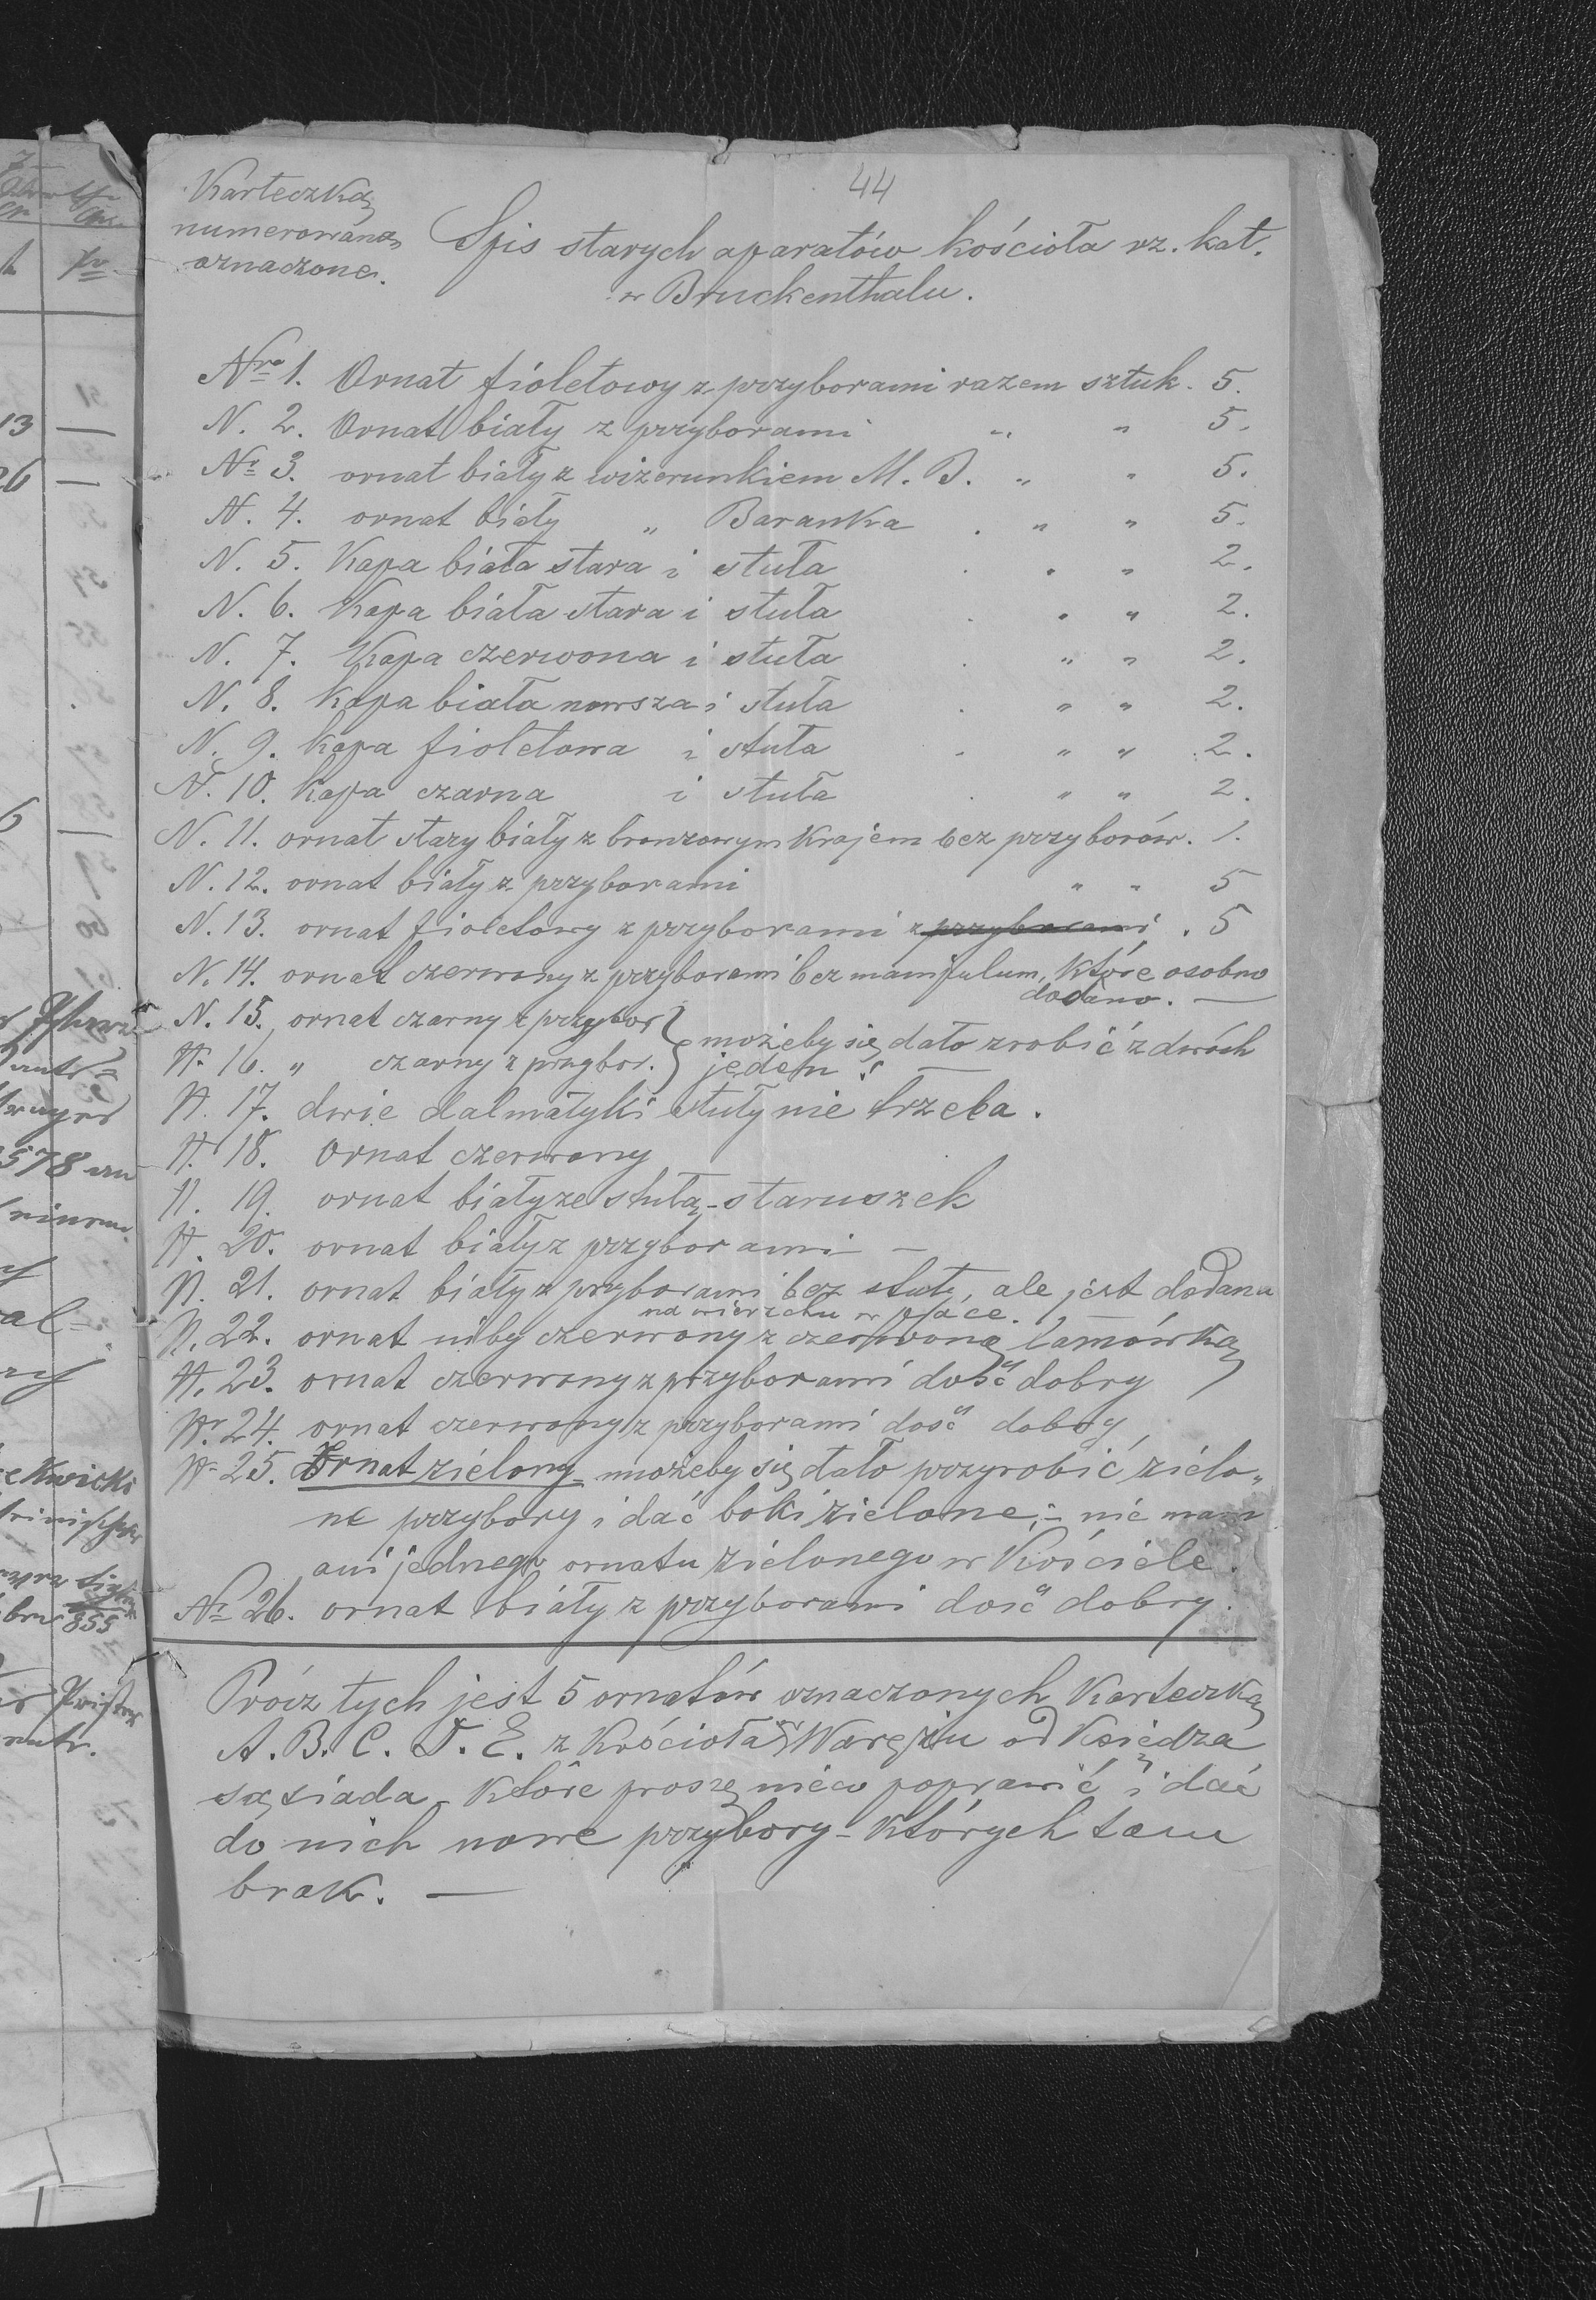 44
Karteczką
numerowaną
oznaczone.
Spis starych aparatów kościoła rz. kat.
w Bruckenthalu.
Nro 1. Ornat fioletowy z przyborami razem sztuk. 5.
N. 2. Ornat biały z przyborami " " 5.
Nr 3. ornat biały z wizerunkiem M. B. " " 5.
N. 4. ornat biały " Baranka . " " 5.
N. 5. Kapa biała stara i stuła . " " 2.
N. 6. Kapa biała stara i stuła . " " 2.
N. 7. Kapa czerwona i stuła . " " 2.
N. 8. Kapa biała nowsza i stuła . " " 2.
N. 9. Kapa fioletowa i stuła . " " 2.
N. 10. Kapa czarna i stuła . " " 2.
N. 11. ornat stary biały z bronzowym krajem bez przyborów. 1.
N. 12. ornat biały z przyborami " " 5
N. 13. ornat fioletowy z przyborami z przyborami . 5
N. 14. ornat czerwony z przyborami bez manipulum, które osobno
dodano. —
N. 15. ornat czarny z przybor
N. 16. " czarny z przybor. } możeby się dało zrobić z dwóch
jeden! —
N. 17. dwie dalmatyki stuły nie trzeba.
N. 18. Ornat czerwony
N. 19. ornat biały ze stułą - staruszek
N. 20. ornat biały z przyborami —
N. 21. ornat biały z przyborami bez stuły, ale jest dodana
na wierzchu w pace.
N. 22. ornat niby czerwony z czerwoną lamówką
N. 23. ornat czerwony z przyborami dość dobry
Nr. 24. ornat czerwony z przyborami dość dobry
N. 25. Ornat zielony - możeby się dało przyrobić zielo„
ne przybory i dać boki zielone, - nie mam
ani jednego ornatu zielonego w Kościele.
Nr 26. ornat biały z przyborami dość dobry.
Prócz tych jest 5 ornatów oznaczonych Karteczką
A. B. C. D. E. z Kościoła w Warężu od Księdza
sąsiada - które proszę nieco poprawić i dać
do nich nowe przybory - których tam
brak. —